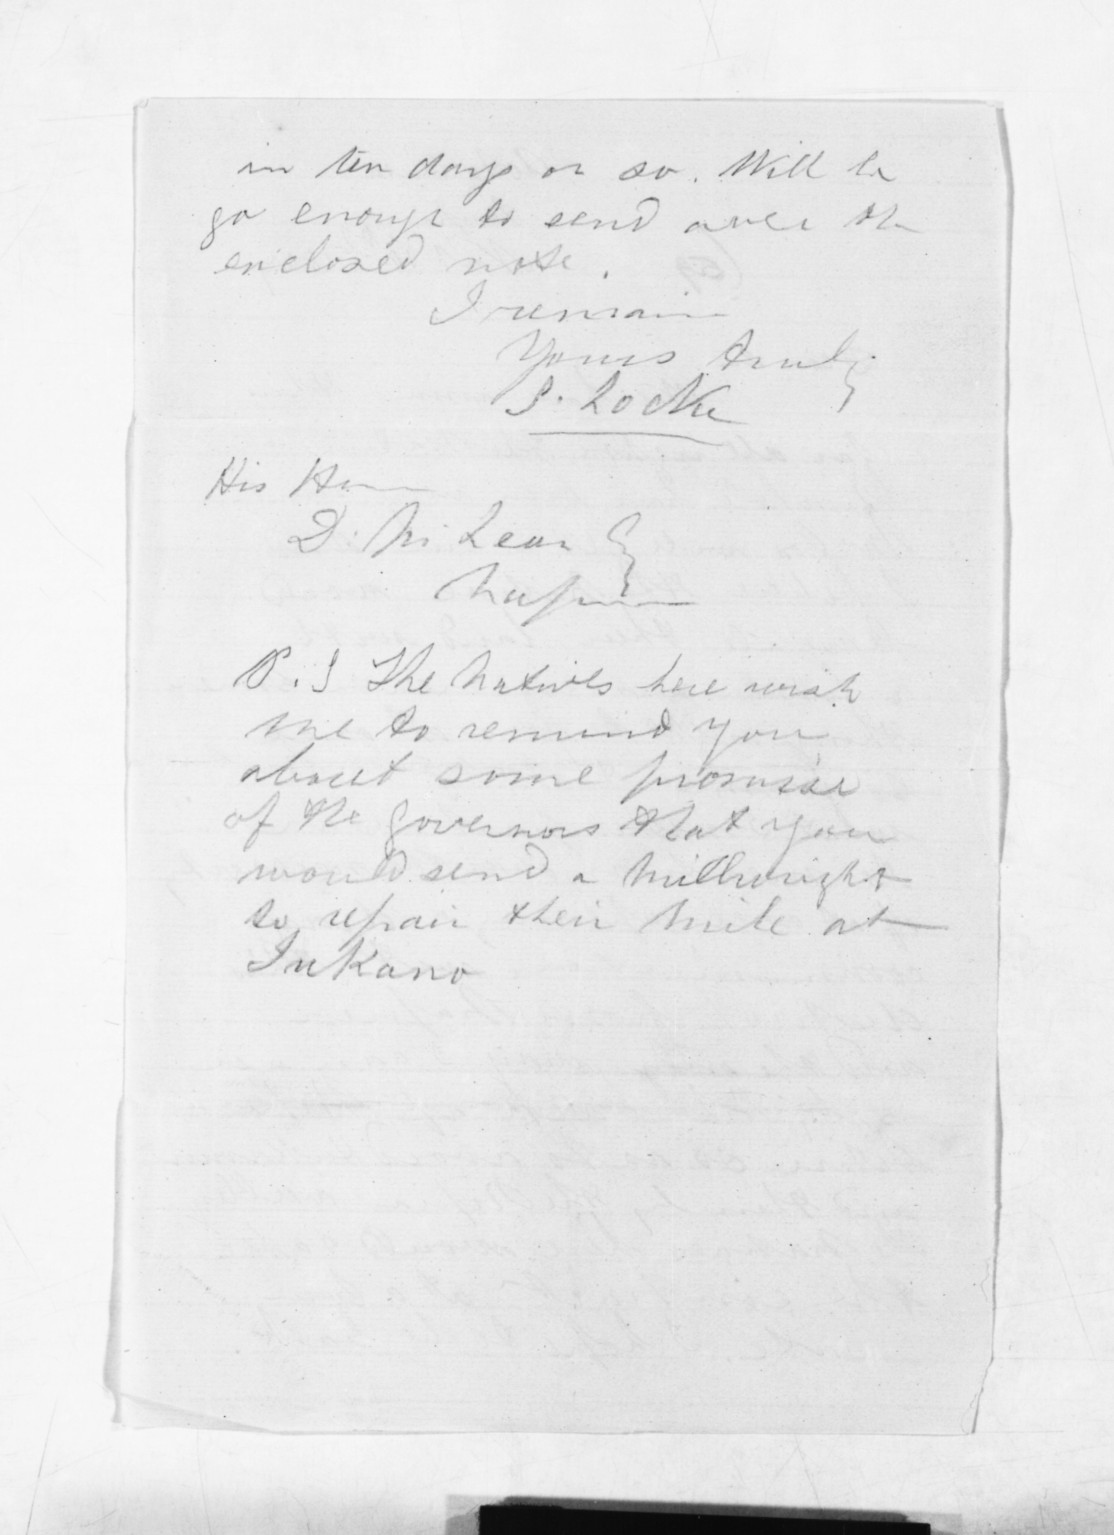 in ten days or so. Will be
go enough to send over the
enclosed note.
I remain
Yours truly
S. Locke
His Hon
D. McLean Esq
Napier
P.S The Natives here wish
me to remind you
about some promise
of the Governors that you
would send a Millwright
to repair their Mile at